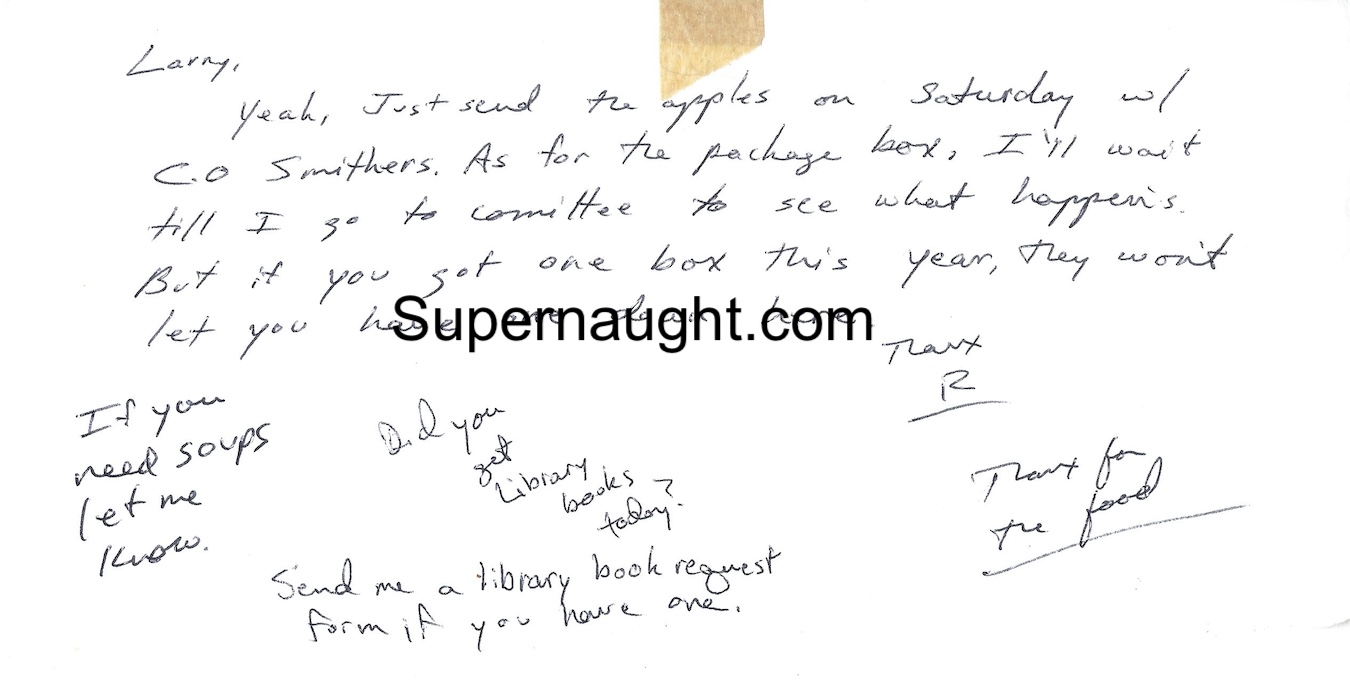 Larry,
Yeah, Just send the apples on Saturday w/
C.O Smithers. As for the package box, I'll wait
till I go to comittee to see what happens.
But if you got one box this year, they won't
let you have one down here.
Supernaught.com
Thanx
R
If you
need soups
let me
know.
Did you
get
Library
books
today?
Thanx for
the food
Send me a library book request
form if you have one.